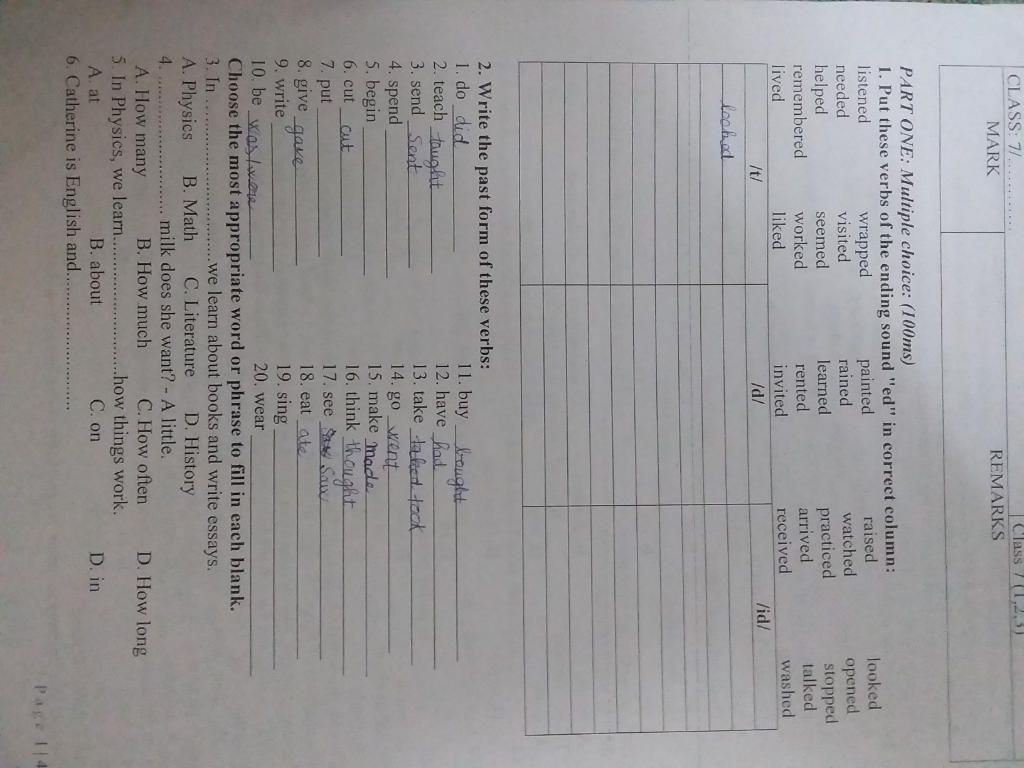 CLASS: 7/............
Class 7 (1,2,3)
MARK REMARKS
PART ONE. Multiple choice: (100ms)
1. Put these verbs of the ending sound "ed" in correct column:
listened wrapped painted raised looked
needed visited rained watched opened
helped seemed learned practiced stopped
remembered worked rented arrived talked
lived liked invited received washed
/t/ /d/ /id/
looked
2. Write the past form of these verbs:
1. do did 11. buy bought
2. teach taught 12. have had
3. send sent 13. take taked took
4. spend 14. go went
5. begin 15. make made
6. cut cut 16. think thought
7. put 17. see saw saw
8. give gave 18. eat ate
9. write 19. sing
10. be was/were 20. wear
Choose the most appropriate word or phrase to fill in each blank.
3. In ..............................we learn about books and write essays.
A. Physics B. Math C. Literature D. History
4. ........................ milk does she want? - A little.
A. How many B. How much C. How often D. How long
5. In Physics, we learn..............................how things work.
A. at B. about C. on D. in
6. Catherine is English and..............................
Page 1|4